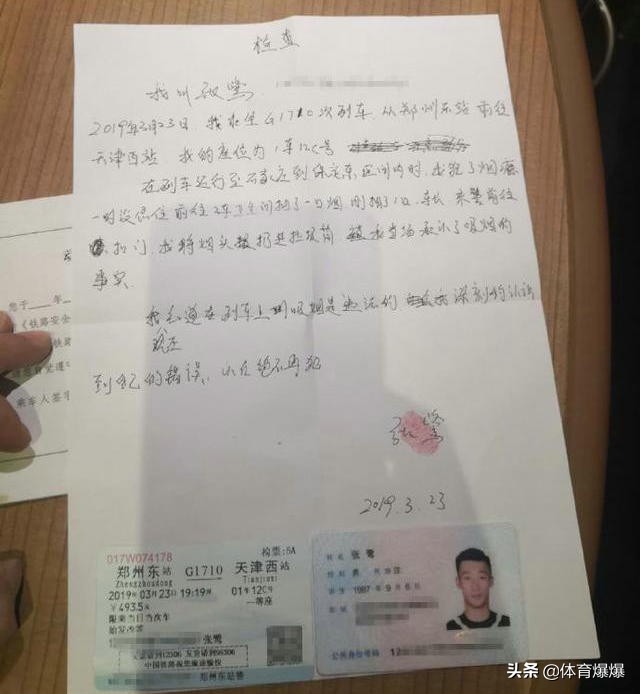 检查
我叫张鹭
2019年3月23日,我在乘G1710次列车,从郑州东站前往
天津西站 我的座位为1车12C号
在列车运行至石家庄到保定东区间内时,我犯了烟瘾
一时没忍住 前往2车卫生间抽了一口烟 刚抽了1口,车长 乘警前往
扣门,我将烟头扔进垃圾箱 我当场承认了吸烟的
事实
我知道在列车上吸烟是违法的 我还 深刻的认识
到自己的错误, 以后绝不再犯
张鹭
2019.3.23
于 年
《铁路安全
乘车人签
017W074178
检票:5A
郑州东站 G1710 天津西站
Zhengzhoudong Tianjinxi
2019年03月23日 19:19开 01车12C号
¥493.5元 一等座
限乘当日当次车
始发改签
张鹭
中国铁路祝您旅途愉快
郑州东站售
姓名 张鹭
性别 男
出生 1987年9月6日
住址
公民身份号码 12
头条 @体育爆爆